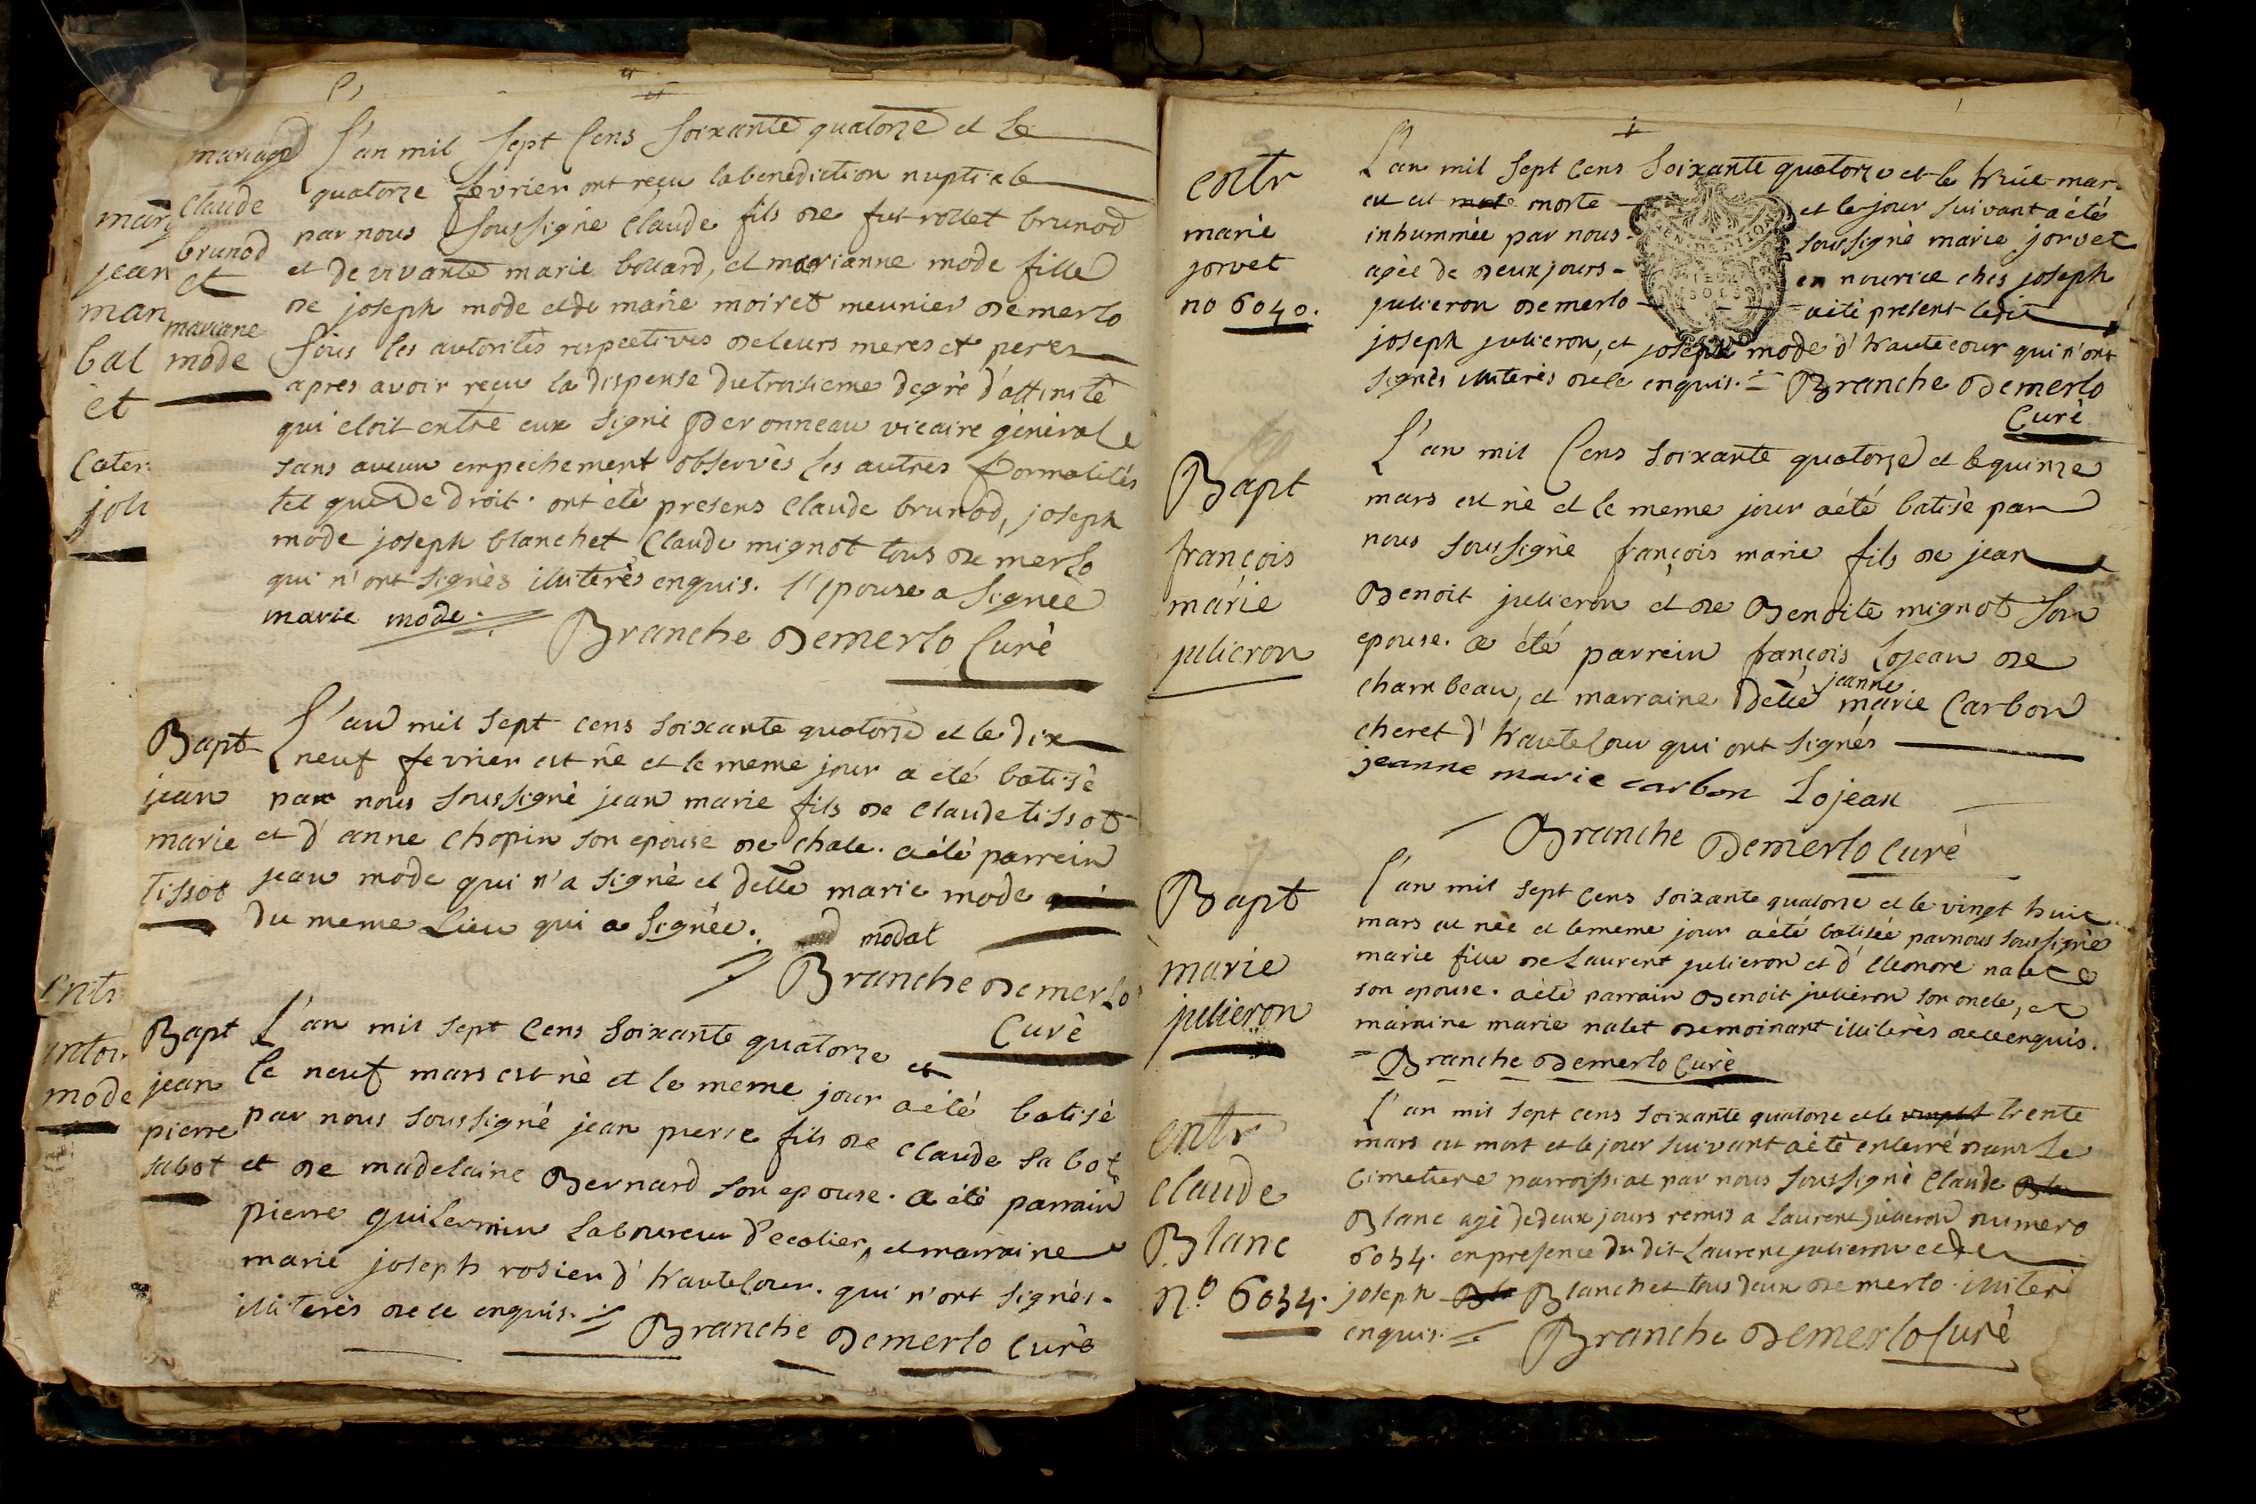 mariage
claude
brunod
et
marianne
mode
L'an mil sept Cens soixante quatorze et le
quatorze fevrier ont reçu la benediction nuptiale
par nous soussigné claude fils de fut rollet brunod
et de vivante marie bollard, et marianne mode fille
de joseph mode et de marie moiret meunier de merlo
sous les autorités respectives de leurs meres et peres
apres avoir reçu la dispense du troisieme degré d'affinité
qui etoit entre eux signé Deronneau vicaire général
sans aucun empechement observés les autres formalités
tel que de droit. ont été presens claude brunod, joseph
mode joseph blanchet claude mignot tous de merlo
qui n'ont signés illiterés enquis. l'epouse a signée
marie mode.
Branche De merlo Curé
Bapt
jean
marie
tissot
L'an mil sept cens soixante quatorze et le dix
neuf fevrier est né et le meme jour a été batisé
par nous soussigné jean marie fils de claude tissot
et d'anne chopin son epouse de chale. a été parrein
jean mode qui n'a signé et dette marie mode
du meme Lieu qui a signée. modal
Branche De merlo
Curé
Bapt
jean
pierre
sabot
L'an mil sept Cens soixante quatorze et
le neuf mars est né et le meme jour a été batisé
par nous soussigné jean pierre fils de claude sabot
et de madelaine Bernard son epouse. a été parrain
pierre guilermin laboureur d'ecolier, et marraine
marie joseph rosier d'hautecour. qui n'ont signés.
illiterés de ce enquis.
Branche De merlo curé
mar
jean
mar
bal
et
Cater
joli
entr
mode
entr
marie
jorvet
no 6040.
L'an mil sept Cens soixante quatorze et le huit mar
est est morte et le jour suivant a été
inhummée par nous soussigné marie jorvet
agée de deux jours en nourice ches joseph
julieron de merlo a été present ledit
joseph julieron, et joseph mode d'hautecour qui n'ont
signés illiterés de ce enquis. Branche De merlo
Curé
Bapt
françois
marie
julieron
L'an mil Cens soixante quatorze et le quinze
mars est né et le meme jour a été batisé par
nous soussigné françois marie fils de jean
Benoit julieron et de Benoite mignot son
epouse. a été parrein françois Lojean de
chambeau, et marraine Dette jeanne marie Carbon
cheret d'hautecour qui ont signés
jeanne marie carbon Lojean
Branche De merlo curé
Bapt
marie
julieron
L'an mil sept cens soixante quatorze et le vingt huit
mars est née et le meme jour a été batisée par nous soussigné
marie fille de Laurent julieron et d'eleonore nalet
son epouse. a été parrain Benoit julieron son oncle, et
marraine marie nalet de moinant illiterés de ce enquis.
Branche De merlo Curé
entr
claude
Blanc
N.º 6034.
L'an mil sept cens soixante quatorze et le vingt trente
mars est mort et le jour suivant a été enterré dans le
Cimetiere parroissial par nous soussigné claude Bla
Blanc agé de deux jours remis a Laurent julieron numero
6034. en presence du dit Laurent julieron et de
joseph Bla Blanchet tous deux de merlo. illiteré
enquis. Branche De merlo Curé